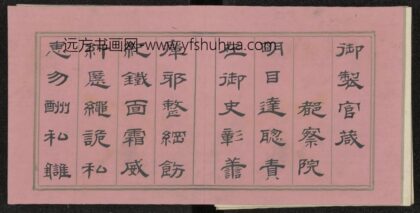 远方书画网--www.yfshuhua.com
御製官箴
都察院
明目達聰責
在御史彰善
癉邪整綱飭
紀鐵面霜威
糾慝繩詭私
惠勿酬私讎